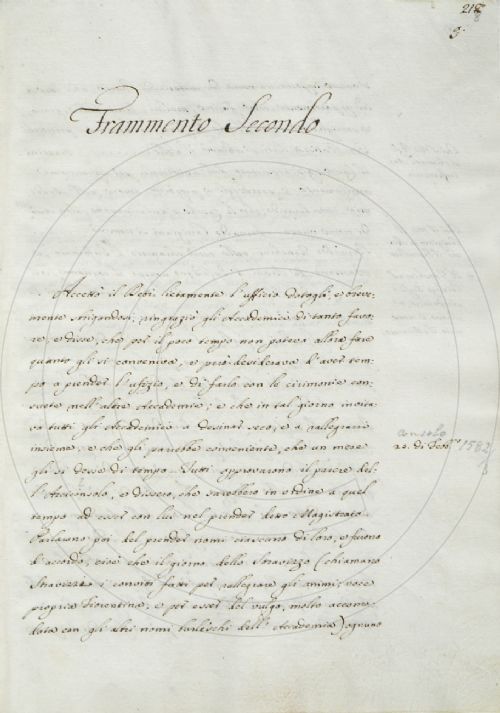 218
9.
Frammento Secondo
Accettò il Pebi lietamente l'uffizio datogli, e breve-
mente ringraziò gli Accademici di tanto favo-
re, e disse, che per il poco tempo non poteva allora fare
quanto gli si conveniva, e però desiderava d'aver tem-
po a prender l'ufizio, e di farlo con le cirimonie con-
suete nell'altre Accademie; e che in tal giorno invita-
va tutti gli Accademici a desinar seco, e a rallegrarsi
insieme; e che gli parrebbe conveniente, che un mese
gli si desse di tempo. Tutti approvarono il parere del-
l'Arciconsolo, e dissero, che sarebbero in ordine a quel
tempo ad esser con lui nel prender detto Magistrato.
Parlarono poi del prender nomi ciascuno di loro, e furono
d'accordo, cioè che il giorno dello Stravizzo (chiamano
Stravizzo i conviti fatti per rallegrare gli animi, voce
propria Fiorentina, e per esser del vulgo, molto accomo-
data con gli altri nomi burleschi dell'Accademia) ognuno
consolo
di Feb.
1582